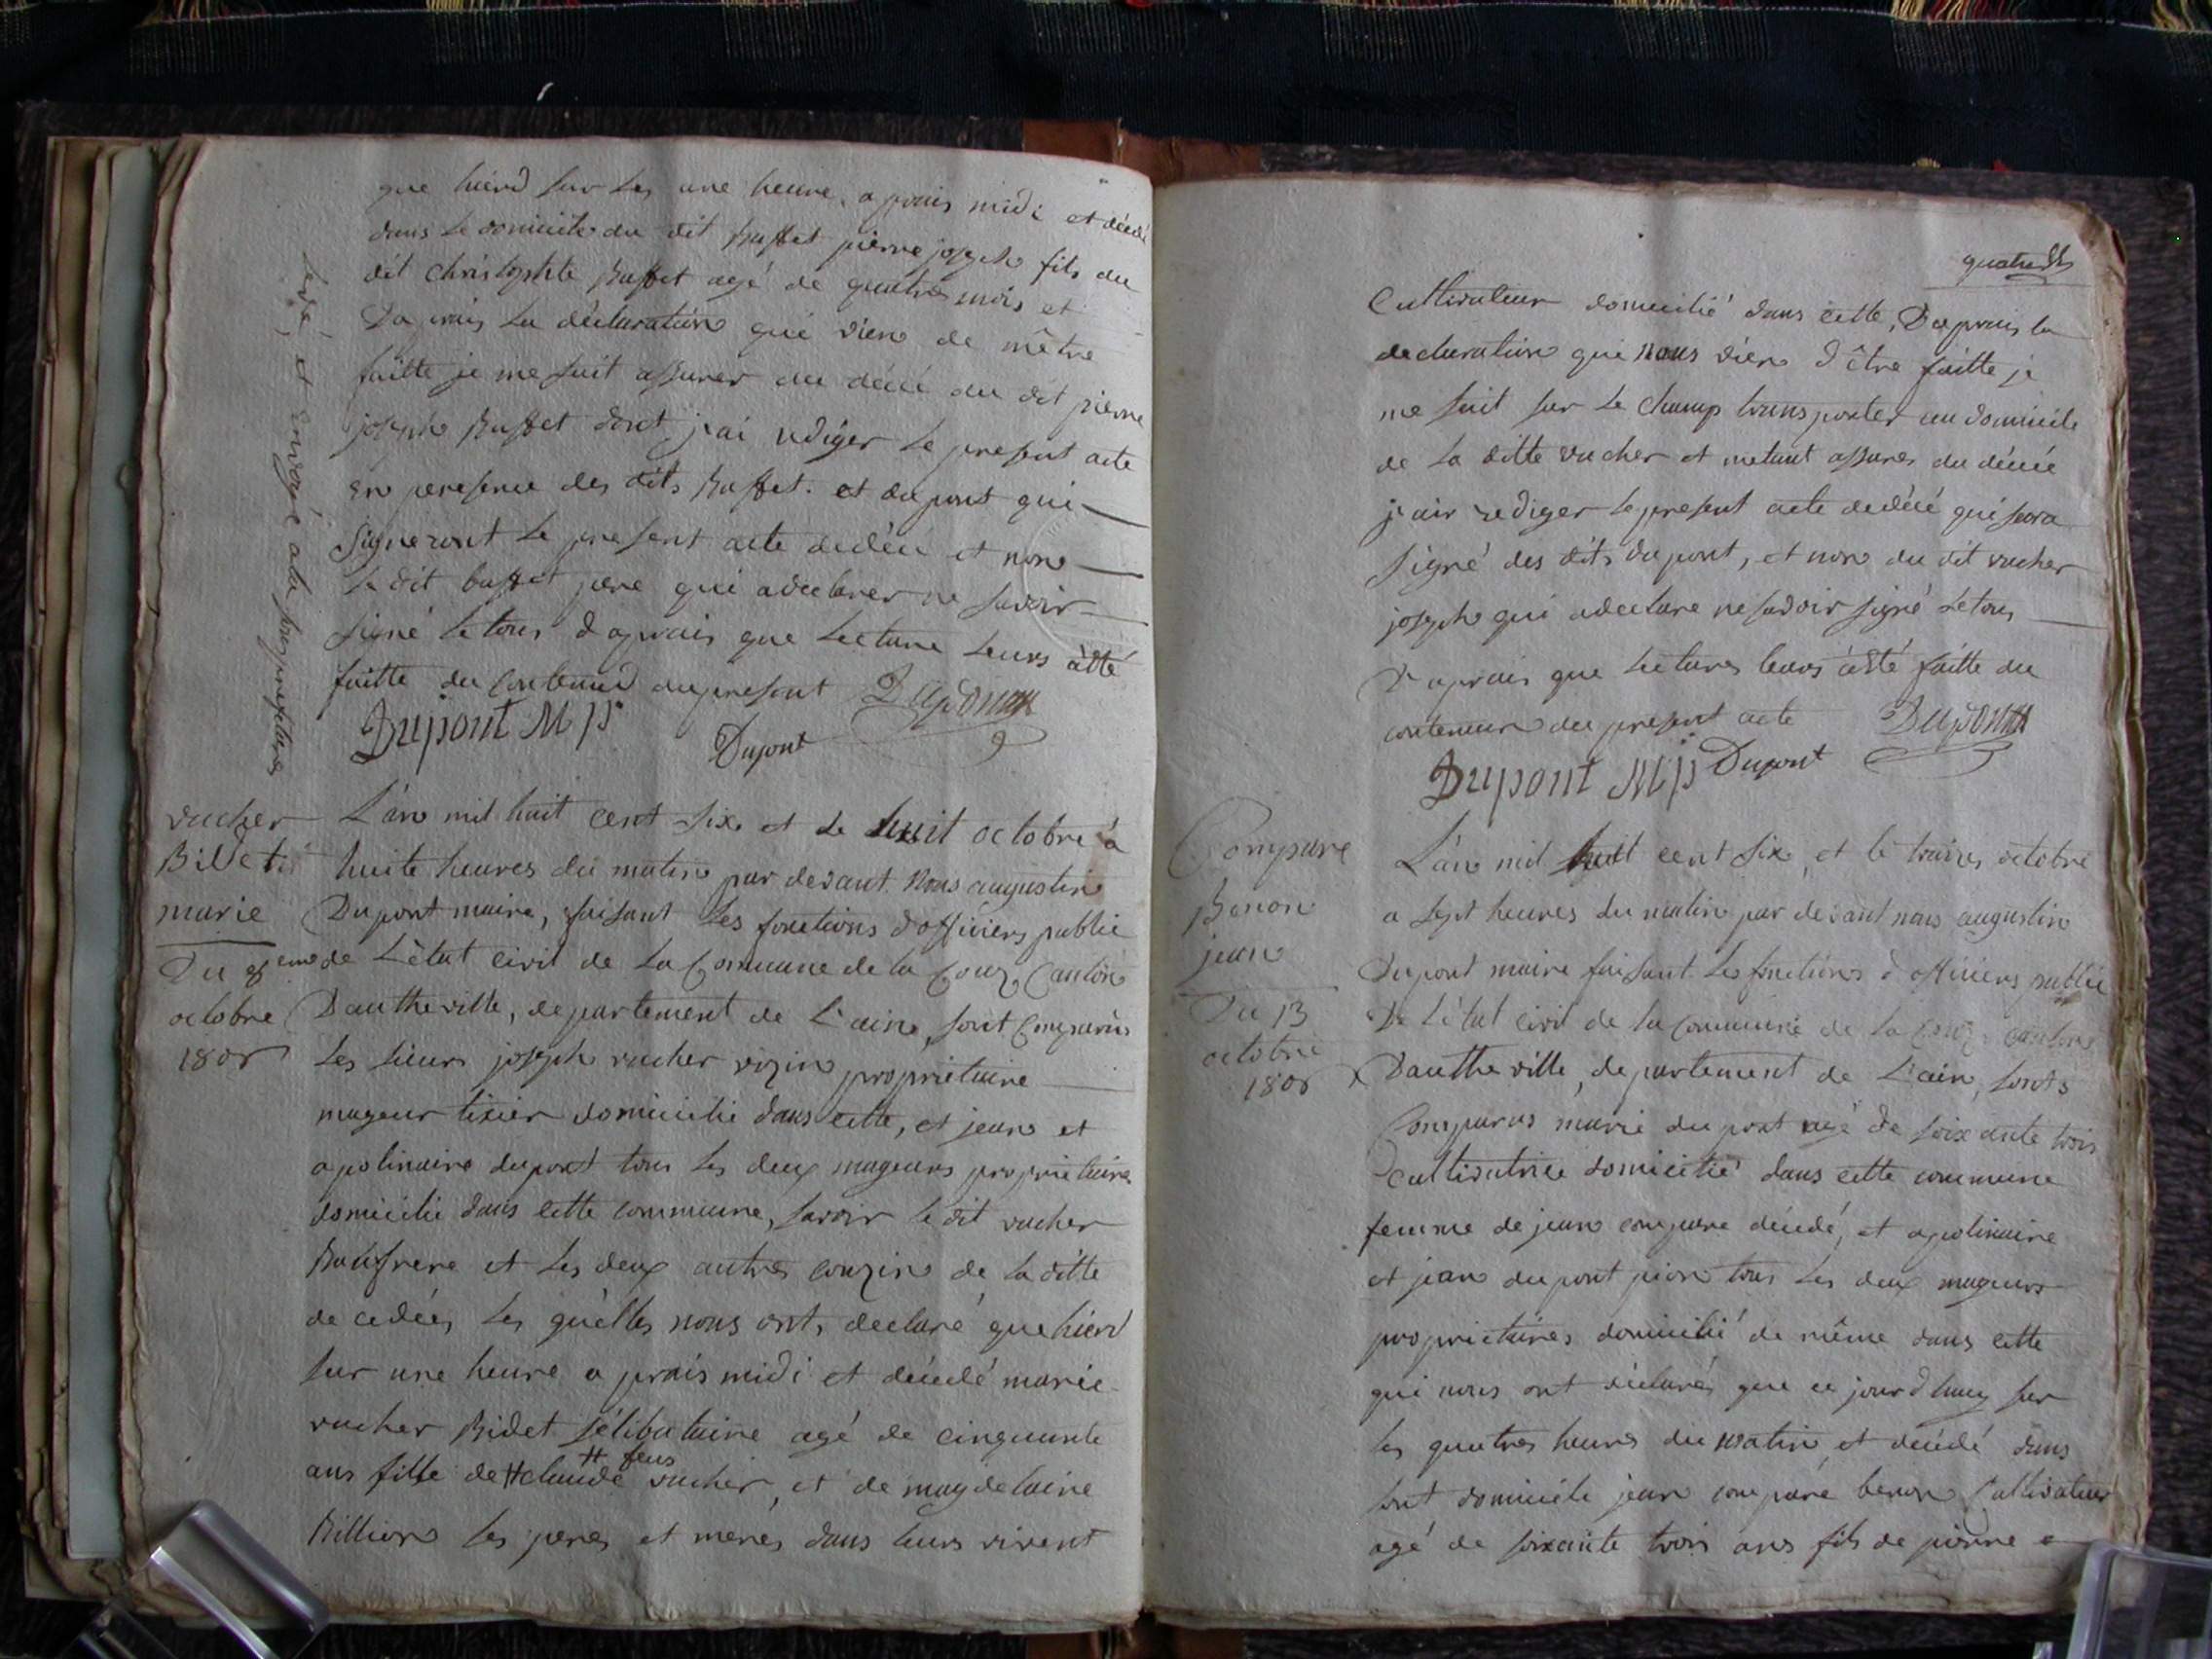 que hierd sur les une heure aprais midi et décédé
dans le domicile du dit buffet pierre joseph fils du
dit christophle buffet agé de quatres mois et
Daprais la déclaration qui vien de mêtre
faitte je me suit assurer du décé du dit pierre
joseph buffet dont j'ai rediger le present acte
en presence des dits buffet. et dupont qui
signeront le present acte dedécé et non
le dit buffet pere qui adeclarer ne savoir
signé letous daprais que lecture leurs àété
faitte du contenud aupresent Dupont
Dupont M
Dupont
et envoyé ala sous prefecture
vucher
Bidet
marie
Du 8eme
octobre
1806
L'an mil huit cent six et le huit octobre à
huite heures du matin par devant nous augustin
Dupont maire, faisant les fonctions d'officiers public
de L'état civil de La Commune de la Couz Canton
Dautheville, departement de L'ain, sont Comparus
les sieurs joseph vucher vizin propriétaire
mageur tixier domicilié dans cette, et jean et
apolinaire dupont tous les deux mageurs propriétaire
domicilié dans cette commune, savoir le dit vucher
Baufrere et les deux autres couzin de la ditte
de cedées les quélles nous onts declaré que hierd
sur une heure a prais midi et décedé marie
vucher Bidet sélibataire agé de cinquante
ans fille de # claude vucher, et de magdelaine
# feus
Billion les peres et meres dans leurs vivent
quatre
Cultivateur domicilié dans cette, Daprais la
declaration qui nous vien d'être faitte je
me suit sur le champ transporter au domicile
de la ditte vucher et metant assurer du décée
j'air rediger le present acte dedécé qui sera
signé des dits dupont, et non du dit vucher
joseph qui adeclare nesavoir signé letous
D'aprais que lectures leurs àété faitte du
contenue du present acte Dupont
Dupont M Dupont
Compare
Benon
jean
Du 13
octobre
1806
L'an mil huit cent six, et le traize octobre
a sept heures du matin par devant nous augustin
Dupont maire faisant les fonctions d'officiers public
De L'état civil de la commune de la Couz canton
Dautheville, departement de L'ain, sonts
Comparus marie dupont agé de soixante trois
Cultivatrice domicilié dans cette commune
femme de jean compare décédé, et apolinaire
et jean dupont pion tous les deux mageurs
proprietaires domicilié de même dans cette
qui nous ont déclarés que ce jourdhuy sur
les quatres heures du matin et décédé dans
sont domicile jean compare benon Cultivateur
agé de soixante trois ans fils de pierre